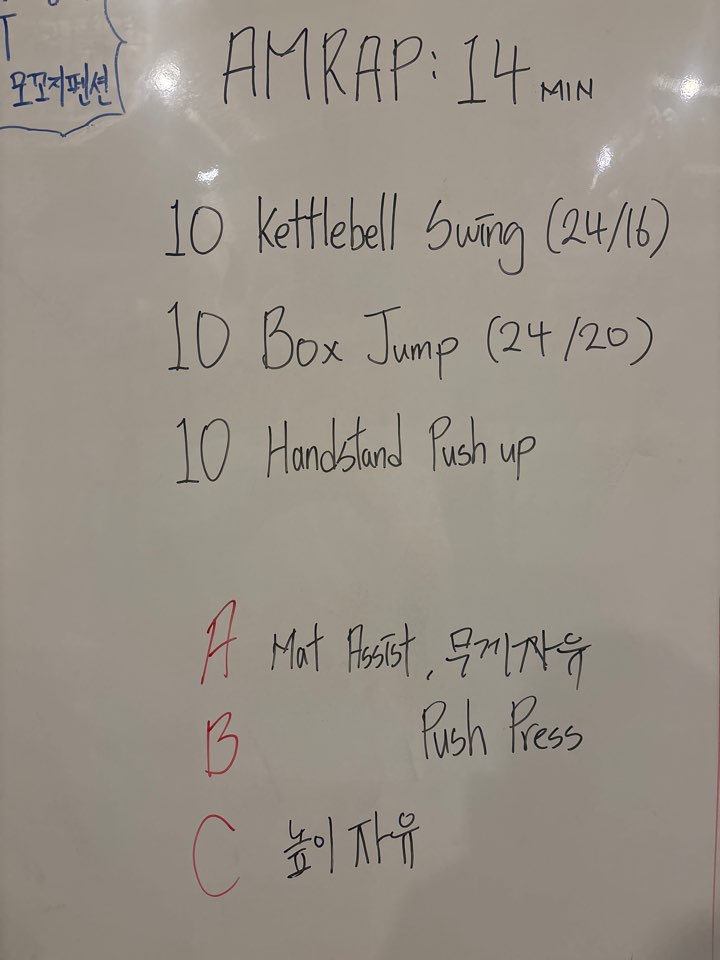 T
모꼬지펜션
AMRAP: 14 MIN
10 Kettlebell Swing (24/16)
10 Box Jump (24/20)
10 Handstand Push up
A Mat Assist, 무게자유
B Push Press
C 높이 자유